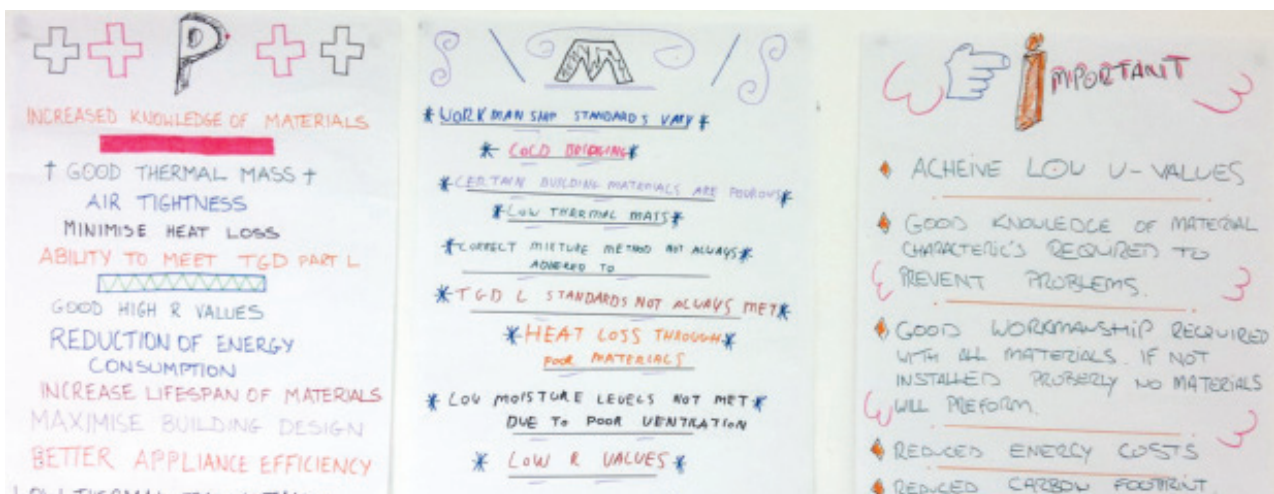 P
INCREASED KNOWLEDGE OF MATERIALS
GOOD THERMAL MASS
AIR TIGHTNESS
MINIMISE HEAT LOSS
ABILITY TO MEET TGD PART L
GOOD HIGH R VALUES
REDUCTION OF ENERGY
CONSUMPTION
INCREASE LIFESPAN OF MATERIALS
MAXIMISE BUILDING DESIGN
BETTER APPLIANCE EFFICIENCY
LOW THERMAL
M
* WORKMAN SHIP STANDARDS VARY *
* COLD BRIDGING *
* CERTAIN BUILDING MATERIALS ARE POUROUS *
* LOW THERMAL MASS *
* CORRECT MIXTURE METHOD NOT ALWAYS *
ADHERED TO
* TGD L STANDARDS NOT ALWAYS MET *
* HEAT LOSS THROUGH *
POOR MATERIALS
* LOW MOISTURE LEVELS NOT MET *
DUE TO POOR VENTRATION
* LOW R VALUES *
IMPORTANT
ACHEIVE LOW U-VALUES
GOOD KNOWLEDGE OF MATERIAL
CHARACTERIC'S REQUIRED TO
PREVENT PROBLEMS.
GOOD WORKMANSHIP RECQUIRED
WITH ALL MATERIALS. IF NOT
INSTALLED PROBERLY NO MATERIALS
WILL PREFORM.
REDUCED ENERGY COSTS
REDUCED CARBON FOOTPRINT